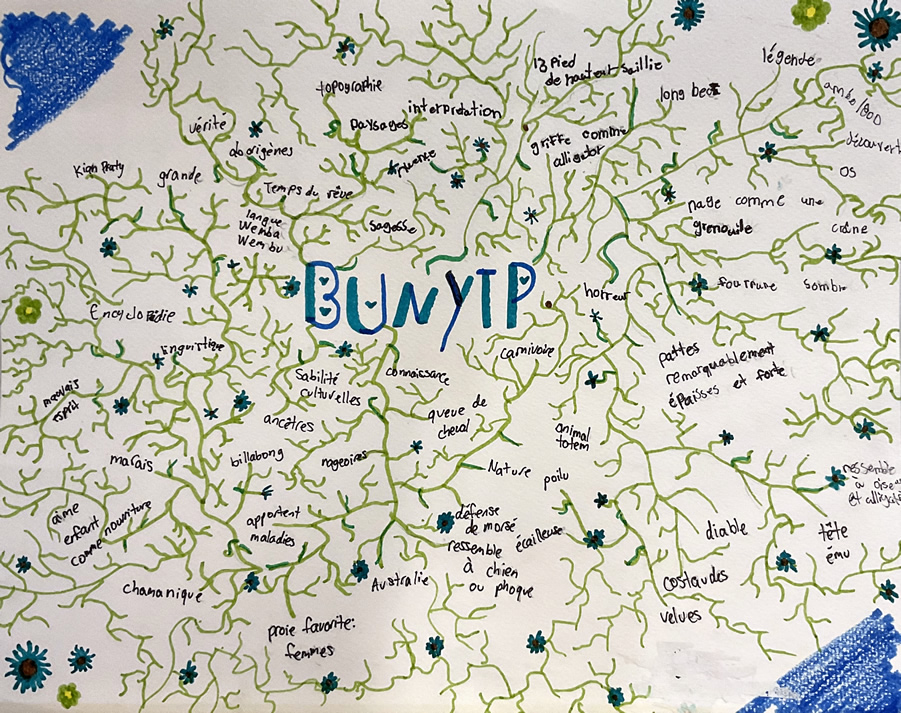 13 Pied
de hauteur saillie
légende
topographie
long bec
interprétation
ambo/800
vérité
paysages
griffe comme
alligator
découvert
aborigènes
os
Kian Party
grande
Temps du rêve
nage comme une
grenouille
langue
Wemba
Wembu
sagesse
crâne
BUNYIP
horreur
fourrure sombre
Encyclopédie
linguistique
carnivore
pattes
remarquablement
épaisses et forte
Sabilité
culturelles
connaissance
mauvais
esprit
ancêtres
queue de
cheval
animal
totem
marais
billabong
nageoires
Nature
poilu
ressemble
à oiseau
et alligator
aime
enfant
comme nourriture
apportent
maladies
défense
de morse
ressemble
à chien
ou phoque
écailleuse
diable
tête
ému
chamanique
Australie
costaudes
velues
proie favorite:
femmes